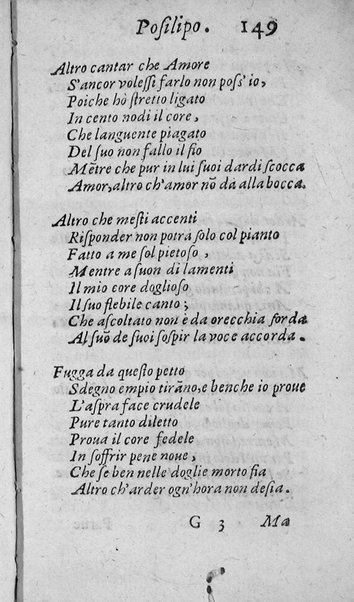 Posilipo. 149
Altro cantar che Amore
S'ancor volessi farlo non poss'io,
Poiche hò stretto ligato
In cento nodi il core,
Che languente piagato
Del suo non fallo il fio
Mẽtre che pur in lui suoi dardi scocca
Amor, altro ch'amor nõ da alla bocca.
Altro che mesti accenti
Risponder non potrà solo col pianto
Fatto a me sol pietoso,
Mentre a suon di lamenti
Il mio core doglioso
Il suo flebile canto;
Che ascoltato non è da orecchia sorda
Al suõ de suoi sospir la voce accorda.
Fugga da questo petto
Sdegno empio tirãno, e benche io proue
L'aspra face crudele
Pure tanto diletto
Proua il core fedele
In soffrir pene noue,
Che se ben nelle doglie morto fia
Altro ch'arder ogn'hora non desia.
G 3 Ma